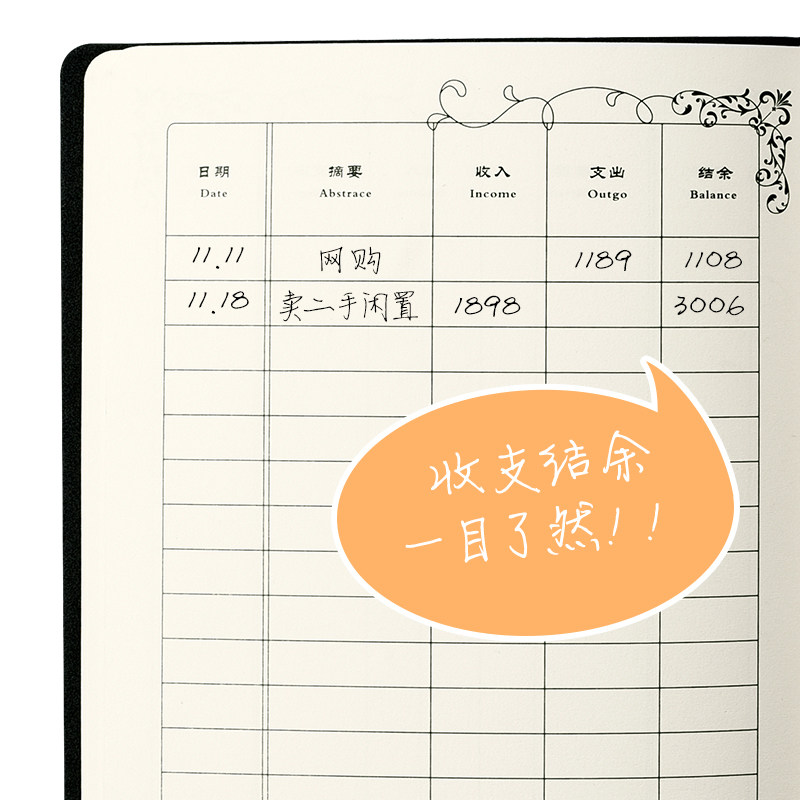 日期 摘要 收入 支出 结余
Date Abstrace Income Outgo Balance
11.11 网购 1189 1108
11.18 卖二手闲置 1898 3006
收支结余
一目了然！！